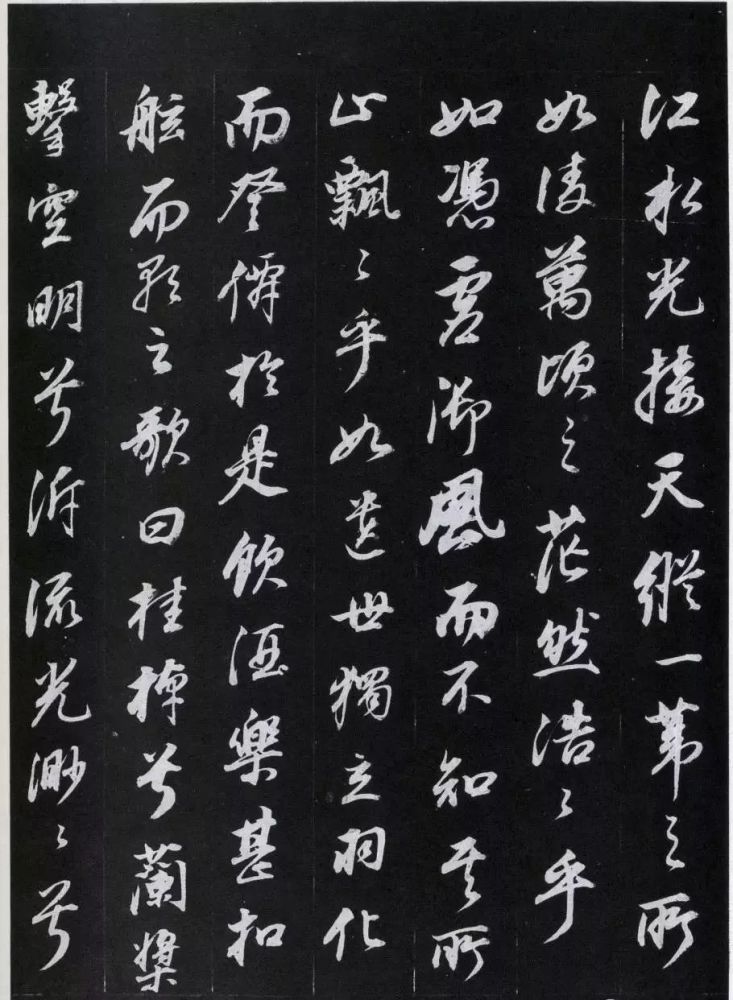 江水光接天縱一葦之所
如凌萬頃之茫然浩〻乎
如憑虛御風而不知其所
止飄〻乎如遺世獨立羽化
而登僊於是飲酒樂甚扣
舷而歌之歌曰桂棹兮蘭槳
擊空明兮泝流光渺〻兮